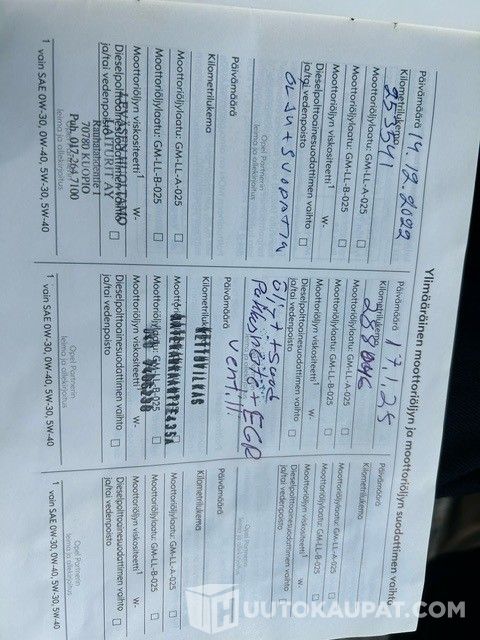 Ylimääräinen moottoriöljyn ja moottoriöljyn suodattimen vaihto
Päivämäärä 14.12.2022
Kilometrilukema
253541
Moottoriöljylaatu: GM-LL-A-025 □
Moottoriöljylaatu: GM-LL-B-025 □
Moottoriöljyn viskositeetti¹ W-
Dieselpolttoainesuodattimen vaihto
ja/tai vedenpoisto □
Opel Partnerin
leima ja allekirjoitus
Päivämäärä
Kilometrilukema
Moottoriöljylaatu: GM-LL-A-025 □
Moottoriöljylaatu: GM-LL-B-025 □
Moottoriöljyn viskositeetti¹ W-
Dieselpolttoainesuodattimen vaihto
ja/tai vedenpoisto □
LAITURIT AY
70780 KUOPIO
Puh. 017-264 7100
Opel Partnerin
leima ja allekirjoitus
1 vain SAE 0W-30, 0W-40, 5W-30, 5W-40
Päivämäärä 17.1.25
Kilometrilukema
288046
Moottoriöljylaatu: GM-LL-A-025 □
Moottoriöljylaatu: GM-LL-B-025 □
Moottoriöljyn viskositeetti¹ W-
Dieselpolttoainesuodattimen vaihto
ja/tai vedenpoisto □
öljyt+suod
+EGR
vent.
Päivämäärä
Kilometrilukema
Moottoriöljylaatu: GM-LL-B-025 □
Moottoriöljyn viskositeetti¹ W-
Dieselpolttoainesuodattimen vaihto
ja/tai vedenpoisto □
Opel Partnerin
leima ja allekirjoitus
1 vain SAE 0W-30, 0W-40, 5W-30, 5W-40
Päivämäärä
Kilometrilukema
Moottoriöljylaatu: GM-LL-A-025 □
Moottoriöljylaatu: GM-LL-B-025 □
Moottoriöljyn viskositeetti¹ W-
Dieselpolttoainesuodattimen vaihto
ja/tai vedenpoisto □
Opel Partnerin
leima ja allekirjoitus
Päivämäärä
Kilometrilukema
Moottoriöljylaatu: GM-LL-A-025 □
Moottoriöljylaatu: GM-LL-B-025 □
Moottoriöljyn viskositeetti¹ W-
Dieselpolttoainesuodattimen vaihto
ja/tai vedenpoisto □
Opel Partnerin
leima ja allekirjoitus
1 vain SAE 0W-30, 0W-40, 5W-30, 5W-40
HUUTOKAUPAT.COM